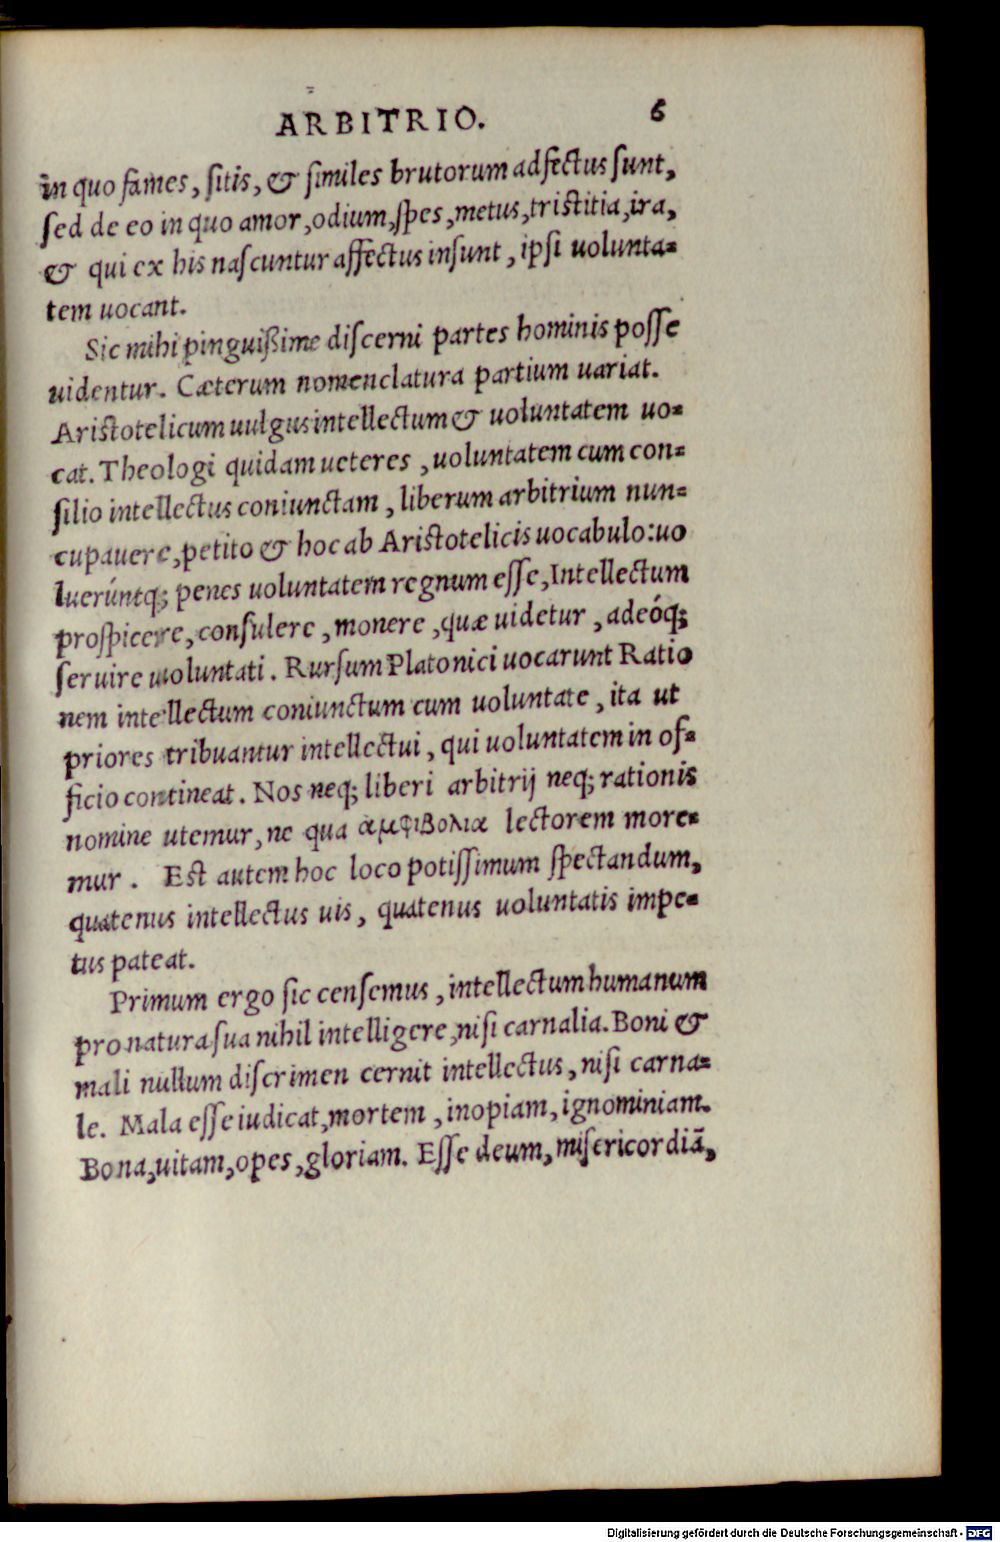 ARBITRIO. 6
in quo fames, ſitis, & ſimiles brutorum adfectus ſunt,
ſed de eo in quo amor, odium, ſpes, metus, triſtitia, ira,
& qui ex his naſcuntur affectus inſunt, ipſi uolunta=
tem uocant.
Sic mihi pinguißime diſcerni partes hominis poſſe
uidentur. Cæterum nomenclatura partium uariat.
Ariſtotelicum uulgus intellectum & uoluntatem uo=
cat. Theologi quidam ueteres, uoluntatem cum con=
ſilio intellectus coniunctam, liberum arbitrium nun=
cupauere, petito & hoc ab Ariſtotelicis uocabulo: uo
luerúntq; penes uoluntatem regnum eſſe, Intellectum
proſpicere, conſulere, monere, quæ uidetur, adeóq;
ſeruire uoluntati. Rurſum Platonici uocarunt Ratio
nem intellectum coniunctum cum uoluntate, ita ut
priores tribuantur intellectui, qui uoluntatem in of=
ficio contineat. Nos neq; liberi arbitrij neq; rationis
nomine utemur, ne qua αμφιβολια lectorem more=
mur. Eſt autem hoc loco potiſſimum ſpectandum,
quatenus intellectus uis, quatenus uoluntatis impe=
tus pateat.
Primum ergo ſic cenſemus, intellectum humanum
pro natura ſua nihil intelligere, niſi carnalia. Boni &
mali nullum diſcrimen cernit intellectus, niſi carna=
le. Mala eſſe iudicat, mortem, inopiam, ignominiam.
Bona, uitam, opes, gloriam. Eſſe deum, miſericordiā,
Digitalisierung gefördert durch die Deutsche Forschungsgemeinschaft - DFG